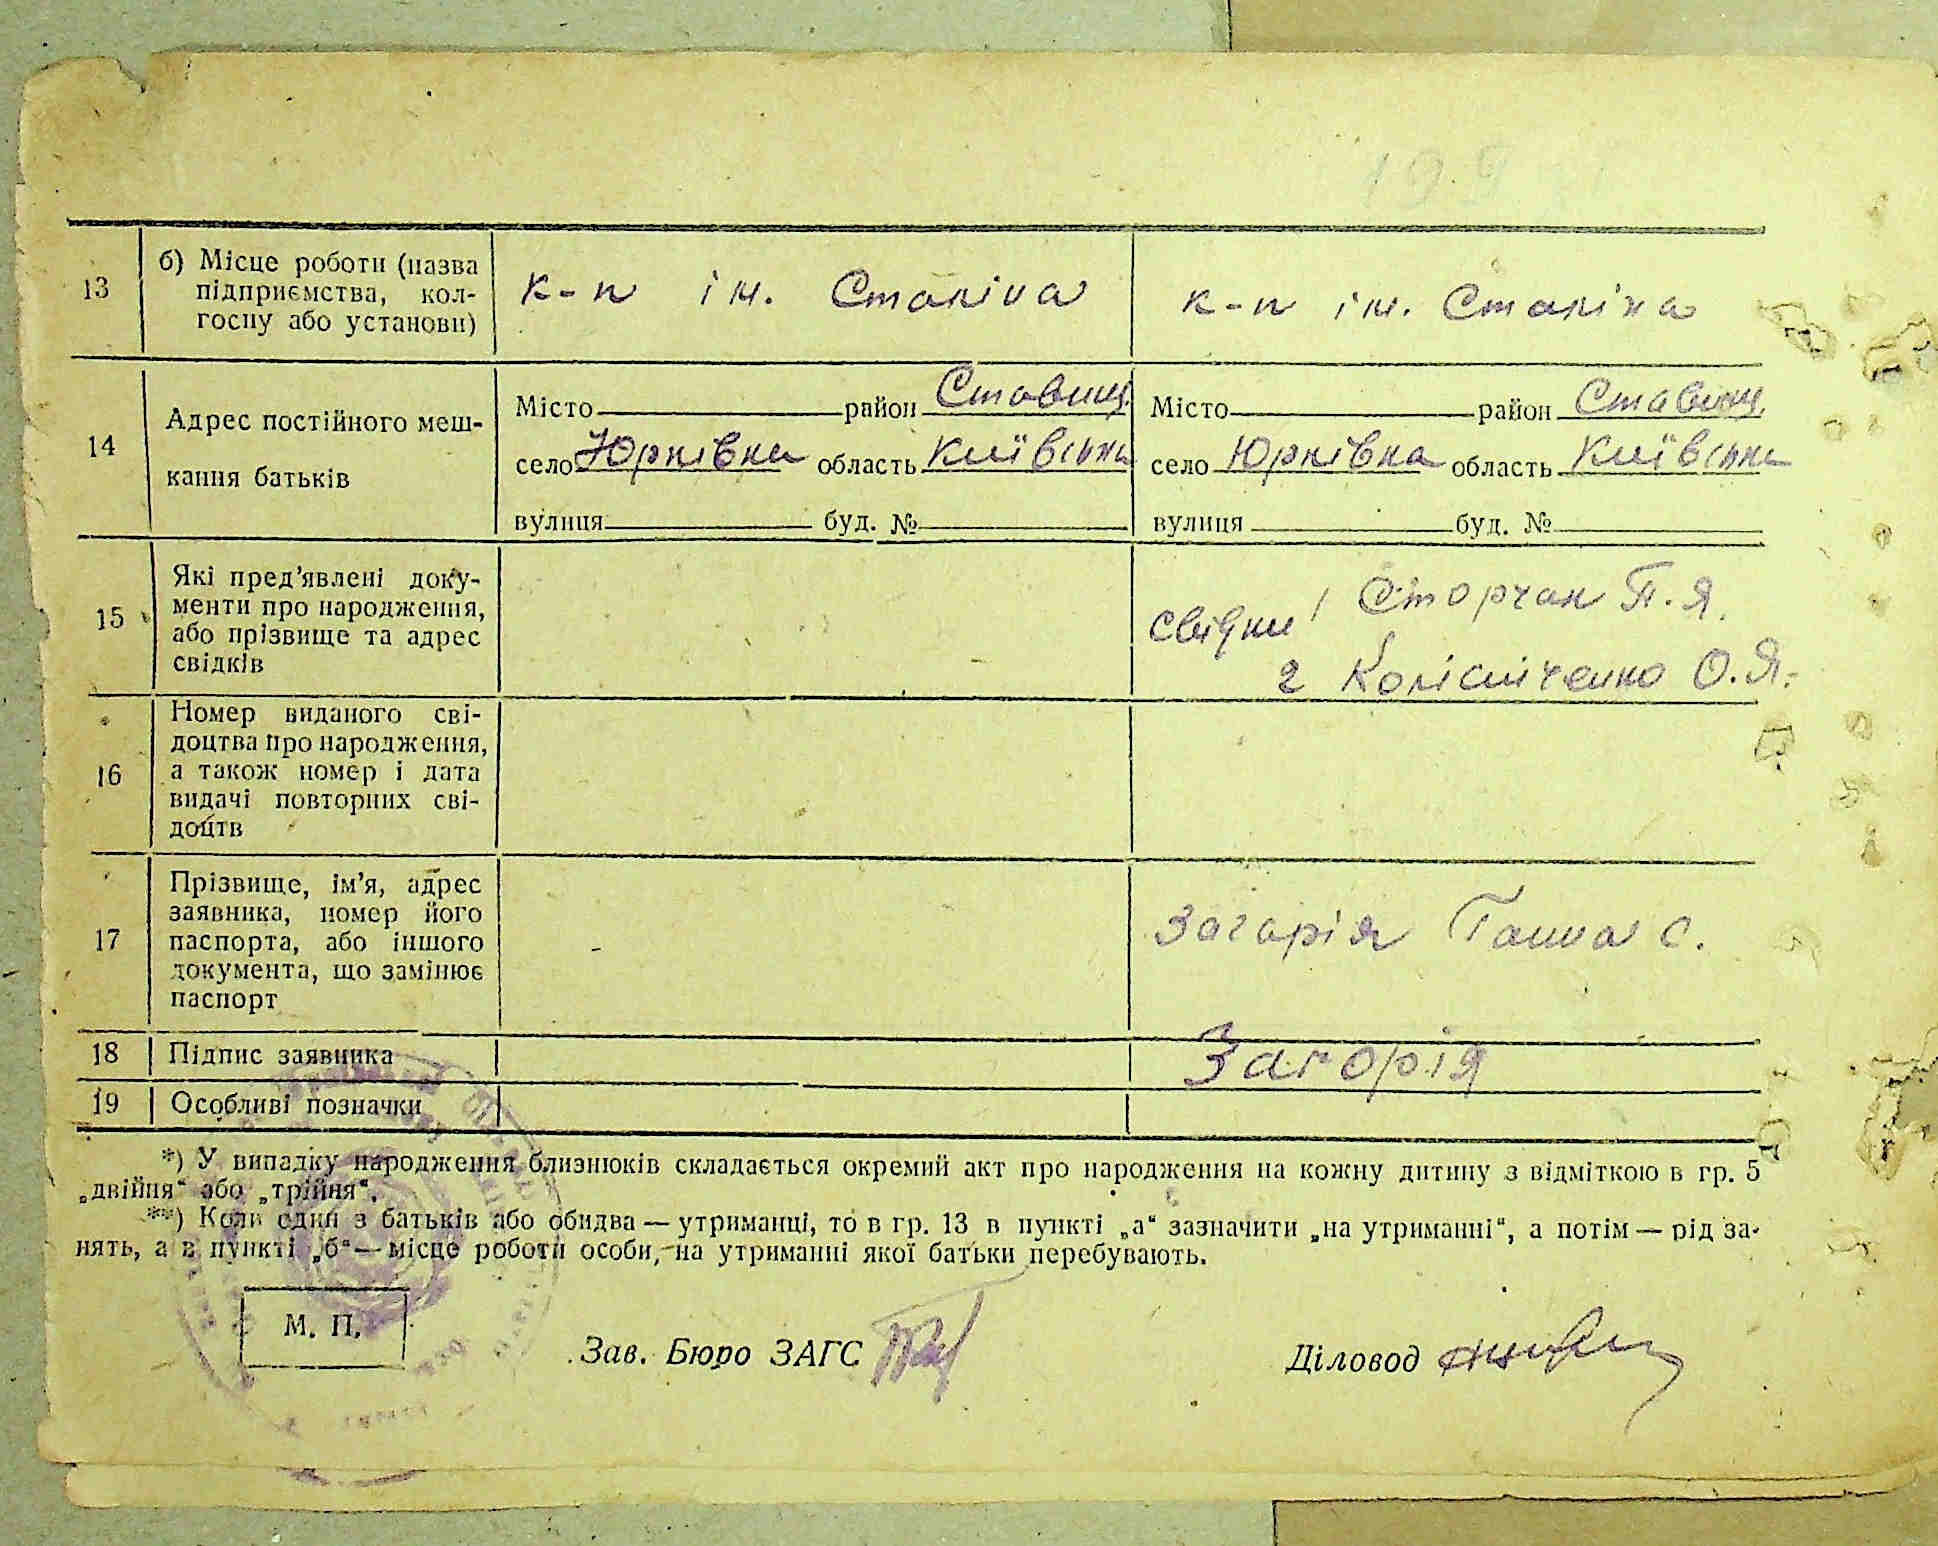 13 б) Місце роботи (назва підприємства, кол-госпу або установи) к-п ім. Сталіна к-п ім. Сталіна
14 Адрес постійного меш-кання батьків
Місто район Ставищ. Місто район Ставищ.
село Юрківка область Київська село Юрківка область Київська
вулиця буд. № вулиця буд. №
15 Які пред'явлені доку-
менти про народження,
або прізвище та адрес
свідків
свідки 1 Сторчак П.Я.
2 Колісніченко О.Я.
16 Номер виданого сві-
доцтва про народження,
а також номер і дата
видачі повторних сві-
доцтв
17 Прізвище, ім'я, адрес
заявника, номер його
паспорта, або іншого
документа, що замінює
паспорт
Загорія Ганна С.
18 Підпис заявника Загорія
19 Особливі позначки
*) У випадку народження близнюків складається окремий акт про народження на кожну дитину з відміткою в гр. 5
„двійня“ або „трійня“.
**) Коли один з батьків або обидва — утриманці, то в гр. 13 в пункті „а“ зазначити „на утриманні“, а потім — рід за-
нять, а в пункті „б“ — місце роботи особи, на утриманні якої батьки перебувають.
М. П.
Зав. Бюро ЗАГС
Діловод